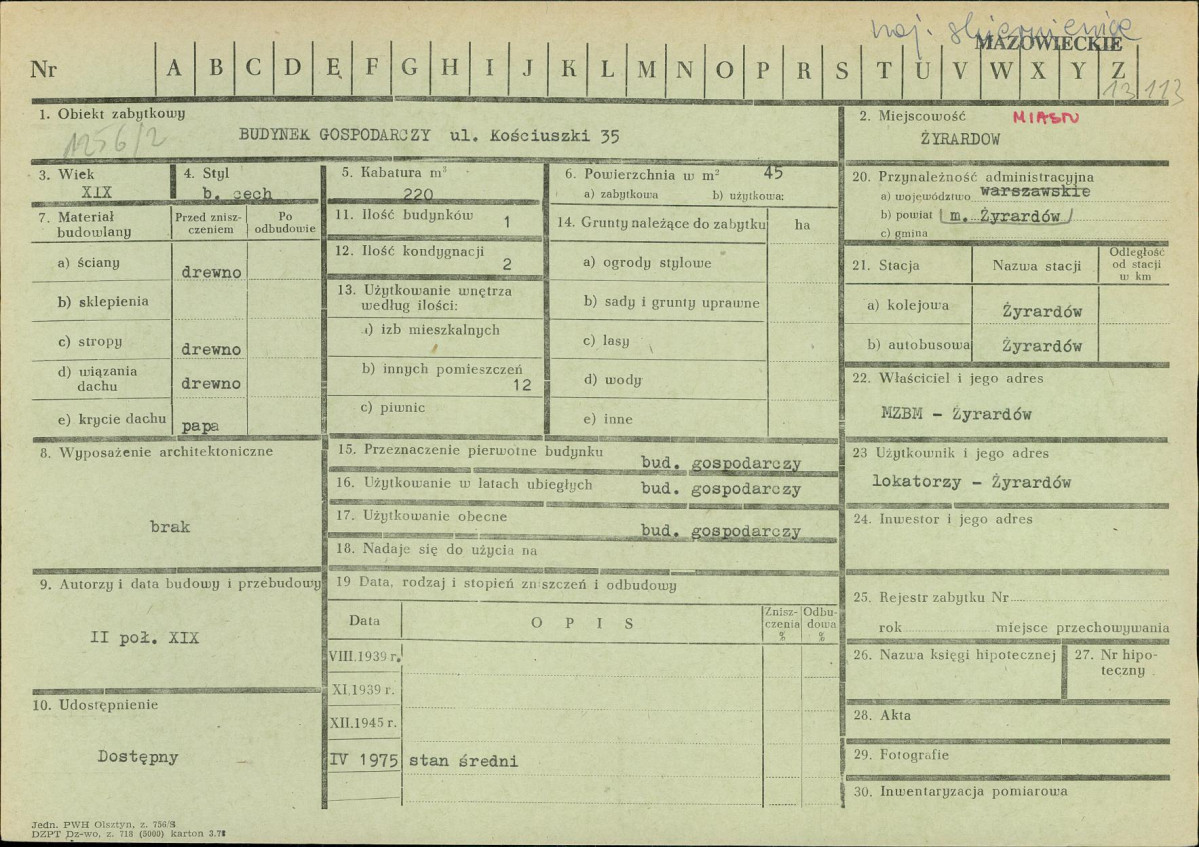 woj. skierniewice
MAZOWIECKIE
Nr A B C D Ę F G H I J K L M N O P R S T U V W X Y Z
13 113
1. Obiekt zabytkowy
1256/2
BUDYNEK GOSPODARCZY ul. Kościuszki 35
2. Miejscowość MIASTO
ŻYRARDOW
3. Wiek
XIX
4. Styl
b. cech
5. Kabatura m³
220
6. Powierzchnia w m² 45
a) zabytkowa b) użytkowa:
7. Materiał budowlany
Przed zniszczeniem
Po odbudowie
a) ściany drewno
b) sklepienia
c) stropy drewno
d) wiązania dachu drewno
e) krycie dachu papa
8. Wyposażenie architektoniczne
brak
9. Autorzy i data budowy i przebudowy
II poł. XIX
10. Udostępnienie
Dostępny
11. Ilość budynków 1
12. Ilość kondygnacji 2
13. Użytkowanie wnętrza
według ilości:
a) izb mieszkalnych
b) innych pomieszczeń 12
c) piwnic
14. Grunty należące do zabytku ha
a) ogrody stylowe
b) sady i grunty uprawne
c) lasy
d) wody
e) inne
15. Przeznaczenie pierwotne budynku
bud. gospodarczy
16. Użytkowanie w latach ubiegłych bud. gospodarczy
17. Użytkowanie obecne
bud. gospodarczy
18. Nadaje się do użycia na
19 Data, rodzaj i stopień zniszczeń i odbudowy
Data
O P I S
Zniszczenia %
Odbudowa %
VIII.1939 r.
XI.1939 r.
XII.1945 r.
IV 1975 stan średni
20. Przynależność administracyjna
a) województwo warszawskie
b) powiat m. Żyrardów
c) gmina
21. Stacja Nazwa stacji
Odległość
od stacji
w km
a) kolejowa Żyrardów
b) autobusowa Żyrardów
22. Właściciel i jego adres
MZBM - Żyrardów
23 Użytkownik i jego adres
lokatorzy - Żyrardów
24. Inwestor i jego adres
25. Rejestr zabytku Nr
rok miejsce przechowywania
26. Nazwa księgi hipotecznej
27. Nr hipoteczny
28. Akta
29. Fotografie
30. Inwentaryzacja pomiarowa
Jedn. PWH Olsztyn, z. 756/S
DZPT Dz-wo, z. 718 (5000) karton 3.78